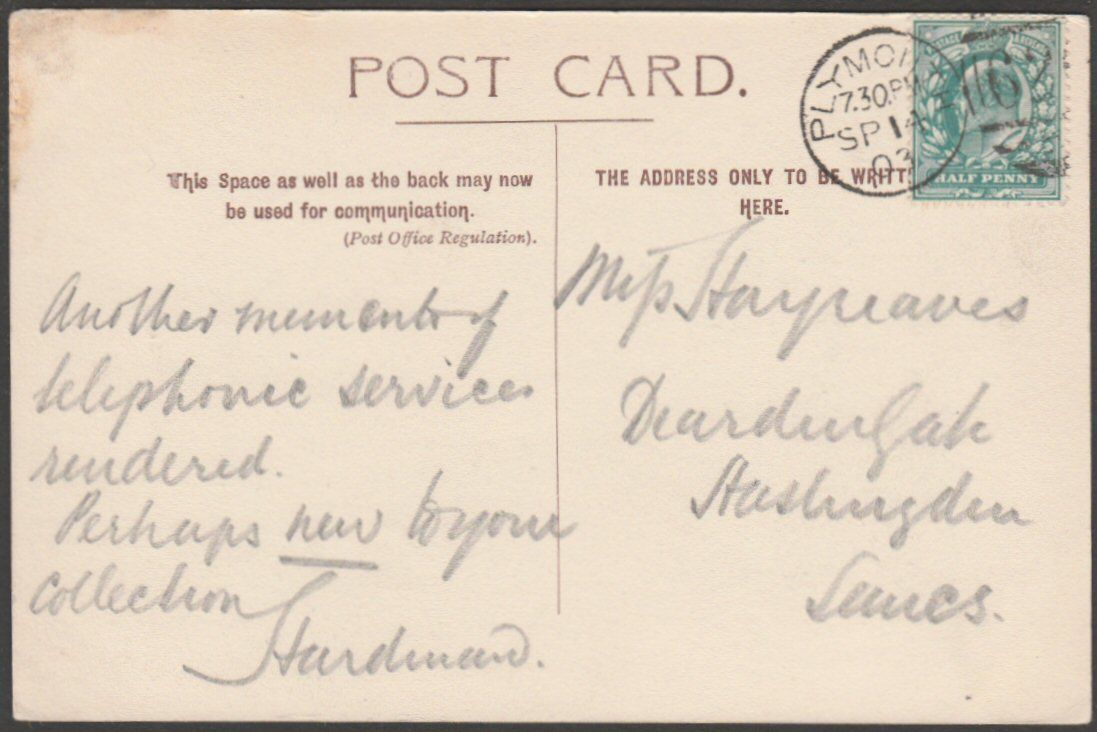 POST CARD.
This Space as well as the back may now
be used for communication.
(Post Office Regulation).
Another memento of
telephonic services
rendered.
Perhaps new to your
collection
Hardman.
PLYMO
7.30.PM
SP 14
03
HALF PENNY
THE ADDRESS ONLY TO BE WRITT
HERE.
Miss Hargreaves
Dearden Gate
Haslingden
Lancs.